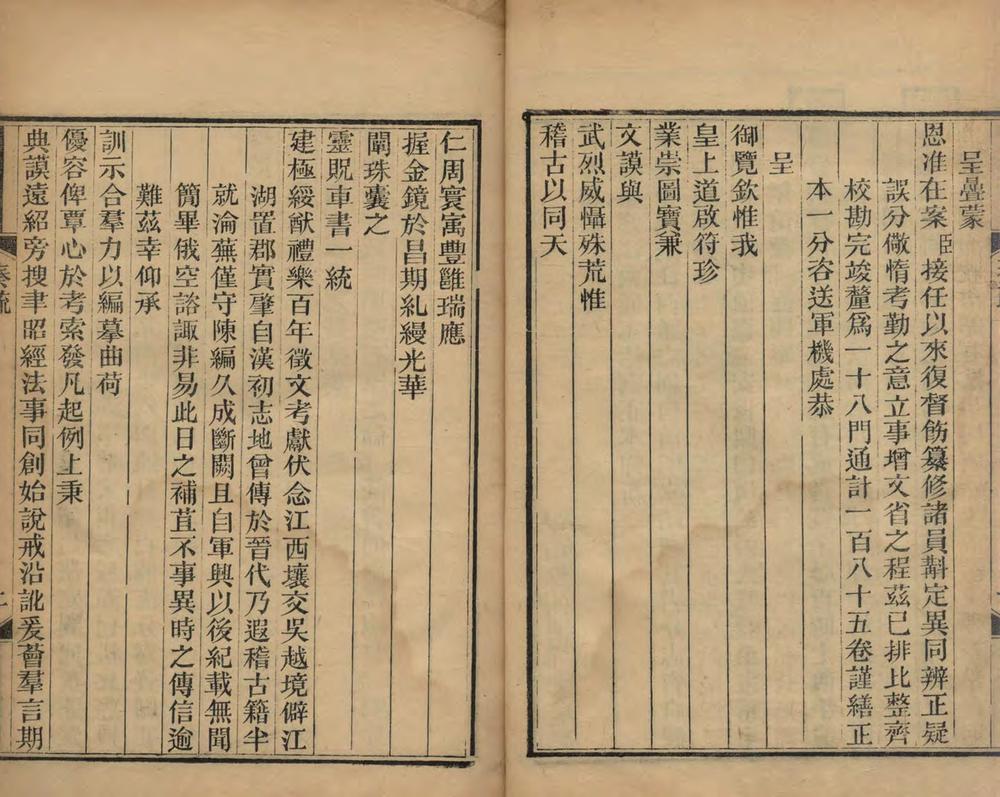 呈疊蒙
恩准在案臣接任以來復督飭纂修諸員斠定異同辨正疑
誤分儆惰考勤之意立事增文省之程茲已排比整齊
校勘完竣釐爲一十八門通計一百八十五卷謹繕正
本一分咨送軍機處恭
呈
御覽欽惟我
皇上道啟符珍
業崇圖寶兼
文謨與
武烈威懾殊荒惟
稽古以同天
仁周寰寓豐雝瑞應
握金鏡於昌期糺縵光華
闡珠囊之
靈貺車書一統
建極綏猷禮樂百年徵文考獻伏念江西壤交吳越境僻江
湖置郡實肇自漢初志地曾傳於晉代乃遐稽古籍半
就淪蕪僅守陳編久成斷闕且自軍興以後紀載無聞
簡畢俄空諮諏非易此日之補苴不事異時之傳信逾
難茲幸仰承
訓示合羣力以編摹曲荷
優容俾覃心於考索發凡起例上秉
典謨遠紹旁搜聿昭經法事同創始說戒沿訛爰薈羣言期
奏疏